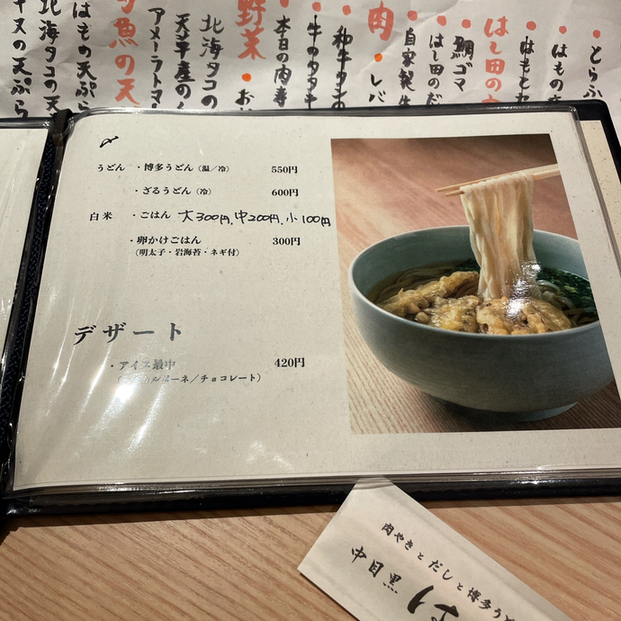 とらふ
はもの
はもとセ
はし田の
鯛ゴマ
はし田のだ
自家製生
肉・レバ
和牛タキ
牛のタタキ
本日の肉寿
野菜・お
北海タコの
天草産の
アメーラトマ
魚の天
はもの天ぷら
北海タコの天
ナスの天ぷら
〆
うどん ・博多うどん（温／冷） 550円
・ざるうどん（冷） 600円
白米 ・ごはん 大300円、中200円、小100円
・卵かけごはん 300円
（明太子・岩海苔・ネギ付）
デザート
・アイス最中 420円
ネ／チョコレート）
肉やきとだしと博多うど
中目黒
は